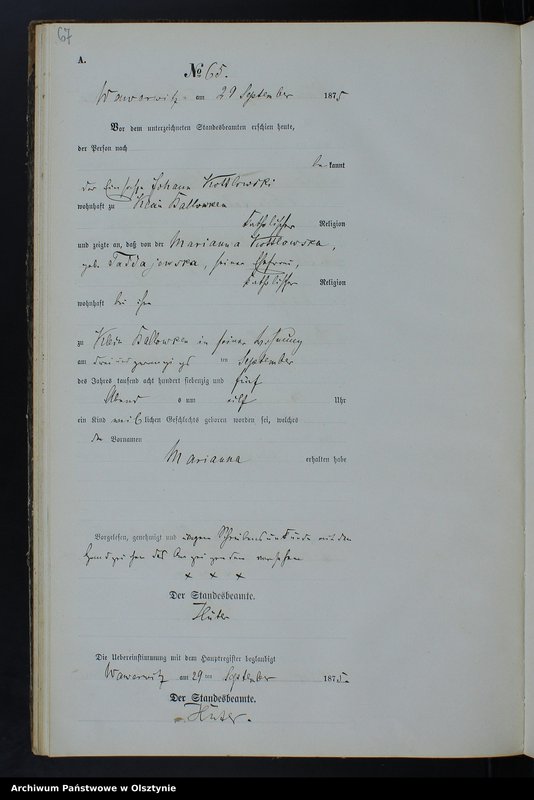 67
A.
No 65.
Wawerwitz am 29 September 1875
Vor dem unterzeichneten Standesbeamten erschien heute,
der Person nach
be kannt
der Johann Kottlowski
wohnhaft zu Klein Ballowken
katholischer Religion
und zeigte an, daß von der Marianna Kottlowska,
geb. Taddajewska, seiner Ehefrau,
katholischer Religion
wohnhaft bei ihm
zu Klein Ballowken in seiner Wohnung
am drei und zwanzigs ten September
des Jahres tausend acht hundert siebenzig und fünf
Abend s um eilf Uhr
ein Kind weib lichen Geschlechts geboren worden sei, welches
den Vornamen
Marianna erhalten habe
Vorgelesen, genehmigt und wegen Schreibensunkunde mit den
Handzeichen des Anzeigenden versehen
x x x
Der Standesbeamte.
Huter
Die Uebereinstimmung mit dem Hauptregister beglaubigt
Wawerwitz am 29 ten September 1875.
Der Standesbeamte.
Huter.
Archiwum Państwowe w Olsztynie